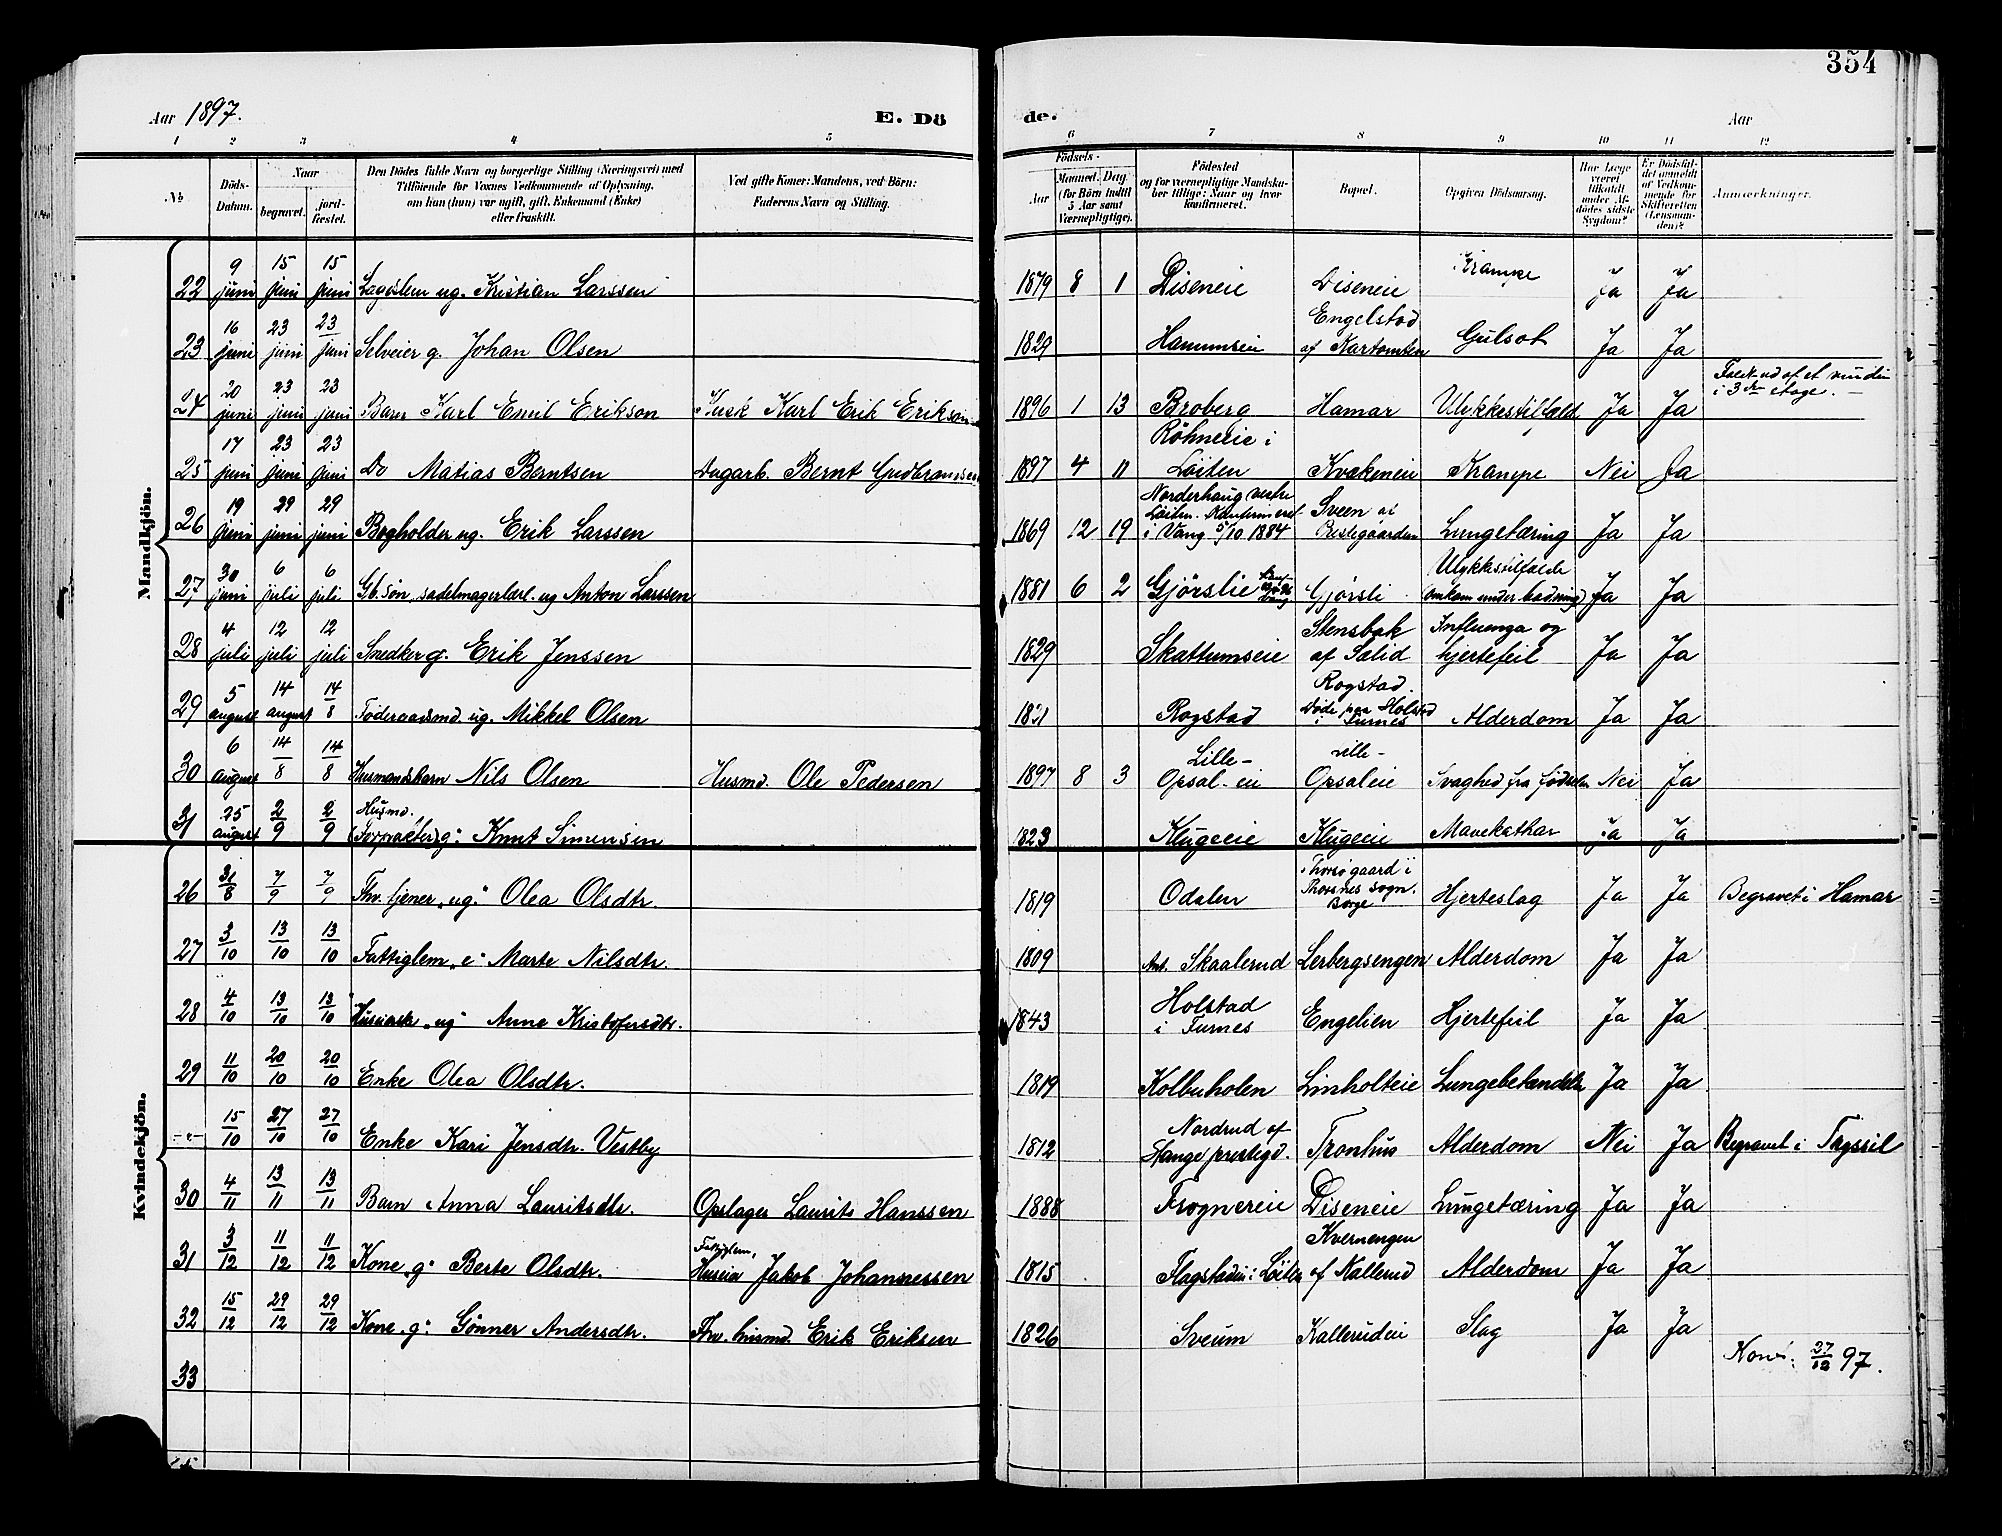 354
Aar 1897.
E. Dö
de.
Aar
1 2 3 4 5 6 7 8 9 10 11 12
No
Döds-Datum.
Naar
begravet.
jord-fæstet.
Den Dödes fulde Navn og borgerlige Stilling (Næringsvei) med
Tilföiende for Voxnes Vedkommende af Oplysning,
om han (hun) var ugift, gift, Enkemand (Enke)
eller fraskilt.
Ved gifte Koner: Mandens, ved Börn:
Faderens Navn og Stilling.
Födsels-
Aar
Maaned. Dag
(for Börn indtil
5 Aar samt
Værnepligtige).
Födested
og for værnepligtige Mandska-
ber tillige: Naar og hvor
konfirmeret.
Bopæl.
Opgiven Dödsaarsag.
Har Læge
været
tilkaldt
under Af-
dödes sidste
Sygdom?
Er Dödsfal-
det anmeldt
af Vedkom-
mende for
Skifteretten
(Lensman-
den)?
Anmærkninger.
Mandkjön.
22 9 juni 15 juni 15 juni ug. Kristian Larssen 1879 8 1 Diseneie Diseneie Krampe Ja Ja
23 16 juni 23 juni 23 juni Selveier g. Johan Olsen 1829 Engelstad af Kartomten Gulsot Ja Ja
24 20 juni 23 juni 23 juni Barn Karl Emil Erikson Kusk Karl Erik Erikson 1896 1 13 Broberg Hamar Ulykkestilfæld Ja Ja Faldt ud af et vindu i 3die etage. —
25 17 juni 23 juni 23 juni Do Matias Berntsen Dagarb. Bernt Gudbrandsen 1897 4 11 Röhneeie i Löiten Kvækeneie Krampe Nei Ja
26 19 juni 29 juni 29 juni Bogholder ug. Erik Larssen 1869 12 19 Norderhaug vestre Löiten. Konfirmeret i Vang 5/10 1884 Sveen ai Prestegaarden Lungetæring Ja Ja
27 30 juni 6 juli 6 juli Gb. sön, sadelmagerlærl. ug Anton Larssen 1881 6 2 Gjörslie Gjörsli Ulykkestilfælde omkom under badning Ja Ja
28 4 juli 12 juli 12 juli Snedker g. Erik Jenssen 1829 Skattumseie Stensbak af Salid Influenza og hjertefeil Ja Ja
29 5 august 14 august 14/8 Föderaadsmd ug. Mikkel Olsen Rogstad Rogstad. Döde paa Holstad i Furnes Alderdom Ja Ja
30 6 august 14/8 14/8 Husmandsbarn Nils Olsen Husmd. Ole Pedersen 1897 8 3 Lille-Opsal-eie Lille-Opsaleie Svaghed fra födselen Nei Ja
31 25 august 2/9 2/9 Husmd. (Forpagter) g. Knut Simensen 1823 Klugeeie Klugeeie Mavekathar Ja Ja
Kvindekjön.
26 31/8 7/9 7/9 Fhv. tjener „ug“ Olea Olsdtr. 1819 Odalen Thorsögaard i Thorsnes sogn. Borge Hjerteslag Ja Ja Begravet i Hamar
27 3/10 13/10 13/10 Fattiglem „e“ Marte Nilsdtr. 1809 Ant. Skaalerud Lerbergsengen Alderdom Ja Ja
28 4/10 13/10 13/10 „ug“ Anne Kristofersdtr. 1843 Holstad i Furnes Engelien Hjertefeil Ja Ja
29 11/10 20/10 20/10 Enke Olea Olsdtr. 1819 Kolbuholen Linholteie Lungebetændelse Ja Ja
-"- 15/10 27/10 27/10 Enke Kari Jensdtr. Vestby 1812 Nordrud af Stange prestegd. Tronhus Alderdom Nei Ja Begravet i Tryssil
30 4/11 13/11 13/11 Barn Anna Lauritsdtr. Opslager Laurits Hanssen 1888 Frognereie Diseneie Lungetæring Ja Ja
31 3/12 11/12 11/12 Kone „g“ Berte Olsdtr. Fattiglem, Huseier Jakob Johannessen 1815 Flagstadeie i Löiten Kvernengen af Kallerud Alderdom Ja Ja
32 15/12 29/12 29/12 Kone „g“ Gönner Andersdtr. Fhv. husmd. Erik Eriksen 1826 Sveum Kallerudeie Slag Ja Ja
33 Konf: 27/12 97.